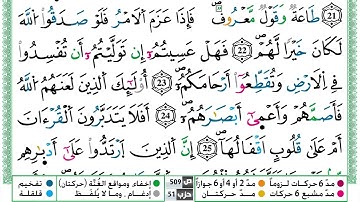 21 طَاعَةٌ وَقَوْلٌ مَّعْرُوفٌ ۖ فَإِذَا عَزَمَ اَ۬لَامْرُ فَلَوْ صَدَقُواْ اُ۬للَّهَ
لَكَانَ خَيْرًا لَّهُمْ ۖ 22 فَهَلْ عَسِيتُمُۥٓ إِن تَوَلَّيْتُمُۥٓ أَن تُفْسِدُواْ
فِے اِ۬لَارْضِ وَتُقَطِّعُوٓاْ أَرْحَامَكُمُۥٓ ۖ 23 أُوْلَٰٓئِكَ اَ۬لذِينَ لَعَنَهُمُ اُ۬للَّهُ
فَأَصَمَّهُمْ وَأَعْم۪يٰٓ أَبْصَٰرَهُمُۥٓ ۖ 24 أَفَلَا يَتَدَبَّرُونَ اَ۬لْقُرْءَانَ
أَمْ عَلَىٰ قُلُوبٍ أَقْفَالُهَآ ۖ 25 إِنَّ اَ۬لذِينَ اَ۪رْتَدُّواْ عَلَىٰٓ أَدْبٰ۪رِهِم
مدّ 6 حركات لزوماً مدّ 2 أو 4 أو 6 جوازاً ص 509 إخفاء، ومواقع الغُنَّة (حركتان) تفخيم
مدّ مشبع 6 حركات مدّ حركتان حزب 51 إدغام، وما لا يُلفَظ قلقلة